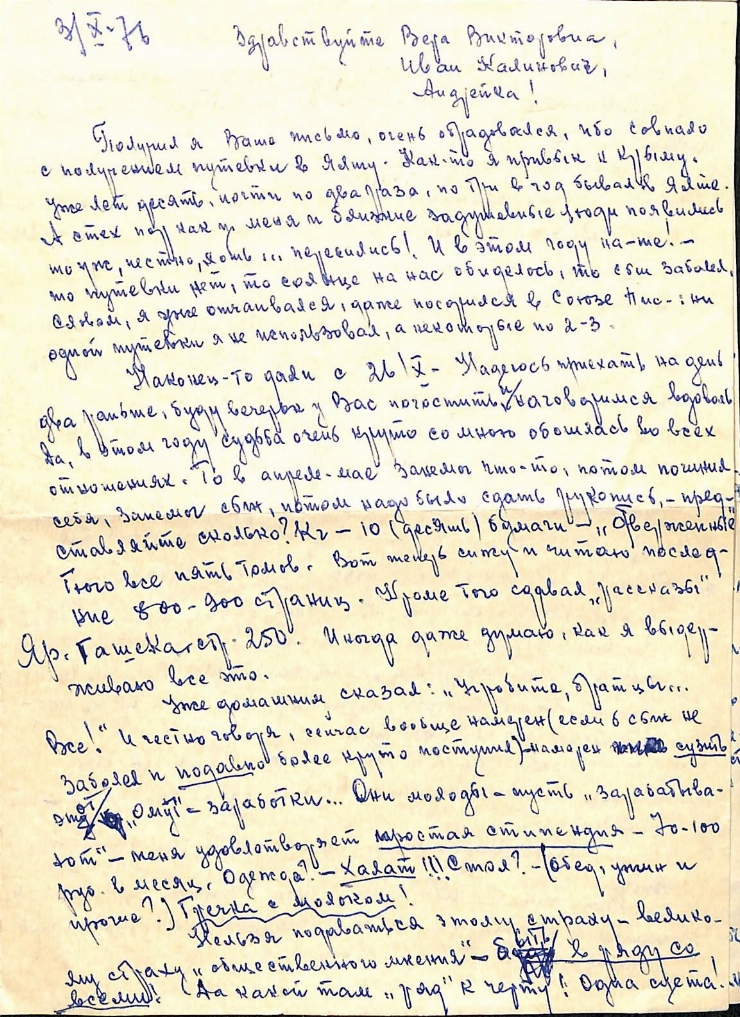 3/X-76 Здравствуйте Вера Викторовна,
Иван Калинович,
Андрейка!
Получил я Ваше письмо, очень обрадовался, ибо совпало
с получением путевки в Ялту. Как-то я привык к Крыму.
Уже лет десять, почти по два раза, по три в год бывал в Ялте.
А с тех пор как у меня и близкие задушевные люди появились
то уж, честно, я ... переселились! И в этом году на-те! -
то путевки нет, то солнце на нас обиделось, то сын заболел,
словом, я уже отчаивался, даже посорился в Союзе Пис-: ни
одной путевки я не использовал, а некоторые по 2-3.
Наконец-то дали с 26/X- Надеюсь приехать на день
два раньше, буду вечерок у Вас погостить и наговоримся вдоволь
Да, в этом году судьба очень круто со мною обошлась во всех
отношениях. То в апреле-мае занемог что-то, потом починил
себя, занемог сын, потом надо было сдать рукопись, - пред-
ставляйте сколько? Кг - 10 (десять) бумаги - „Отверженные"
Гюго все пять томов. Вот теперь сижу и читаю послед-
ние 800-900 страниц. Кроме того сдавал „рассказы"
Яр. Гашека, стр. 250. Иногда даже думаю, как я выдер-
живаю все это.
Уже домашним сказал: „Угробите, братцы...
Все!" И честно говоря, сейчас вообще намерен (если б сын не
заболел и подавно более круто поступил) - намерен сузить
этот „Омут" - заработки... Они молоды - пусть „зарабатыва-
ют" - меня удовлотворяет простая стипендия - 70-100
руб. в месяц. Одежда? - Халат!!! Стол? - (обед, ужин и
проче?) Гречка с молоком!
Нельзя подаваться этому страху - велико-
му страху „общественного мнения" - быть в ряду со
всеми. Да какой там „ряд" к черту! Одна суета!